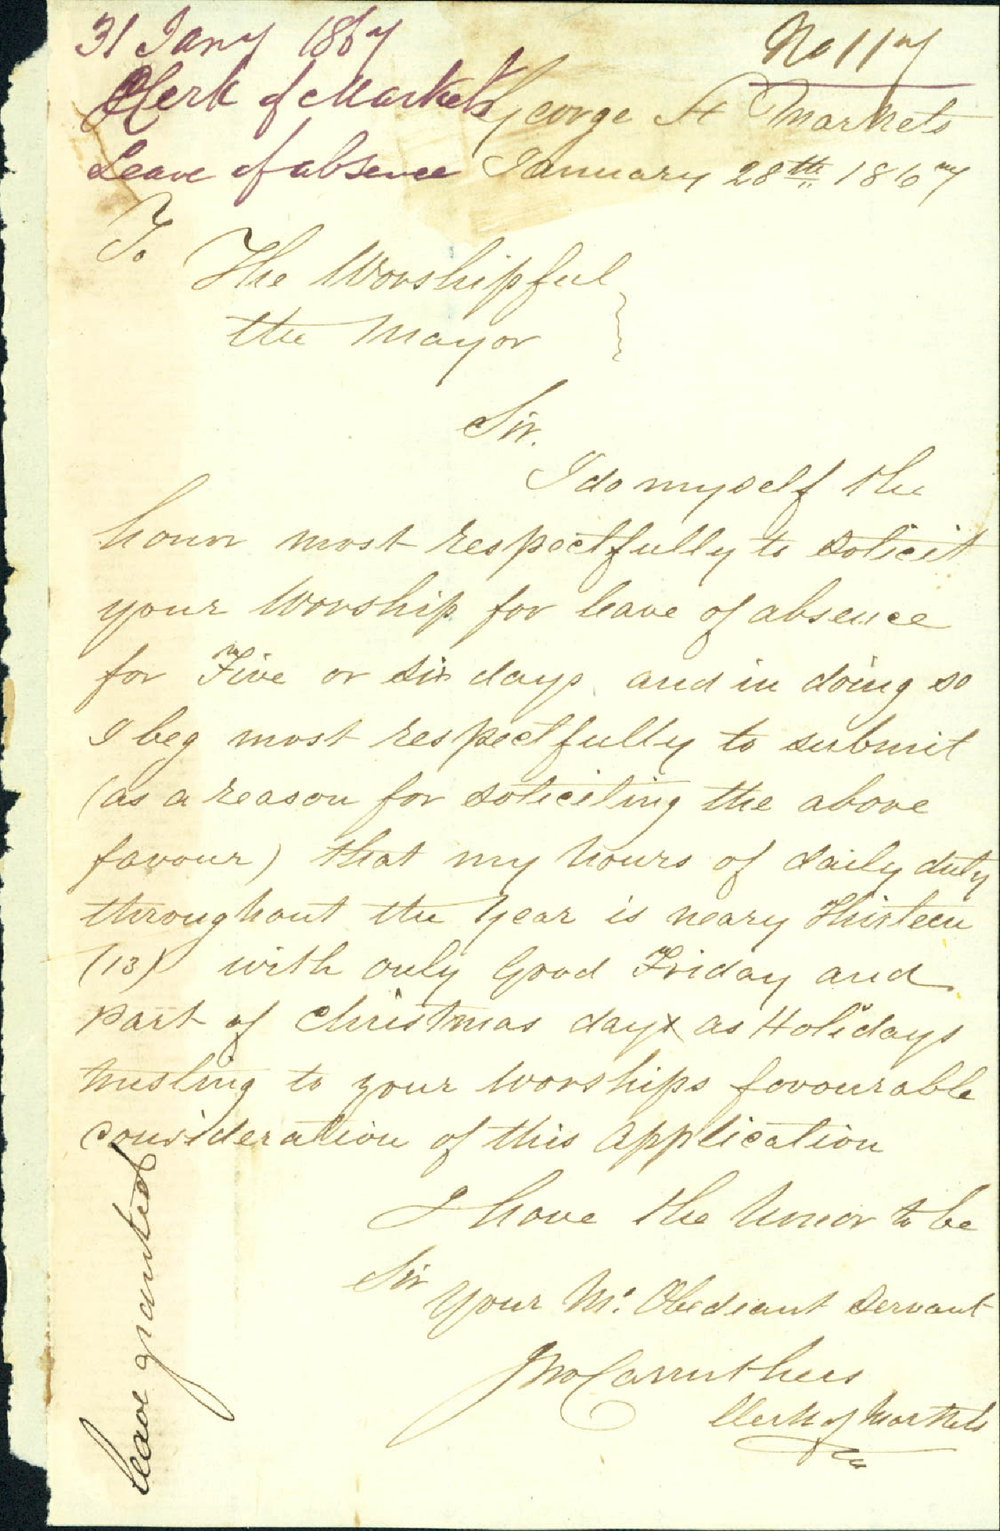 31 Jany 1867
No 117
Clerk of Markets
Leave of absence
George St Markets
January 28th 1867
To
The Worshipful
the Mayor
Sir.
I do myself the
honor most respectfully to solicit
your Worship for leave of absence
for Five or six days, and in doing so
I beg most respectfully to submit
(as a reason for soliciting the above
favour) that my hours of daily duty
throughout the Year is neary Thirteen
(13) with only Good Friday and
Part of Christmas day as Holidays
trusting to your Worships favourable
consideration of this Application
I have the honor to be
Sir
Your Mt. Obediant Servant
Jno Carruthers
Clerk of Markets
leave granted